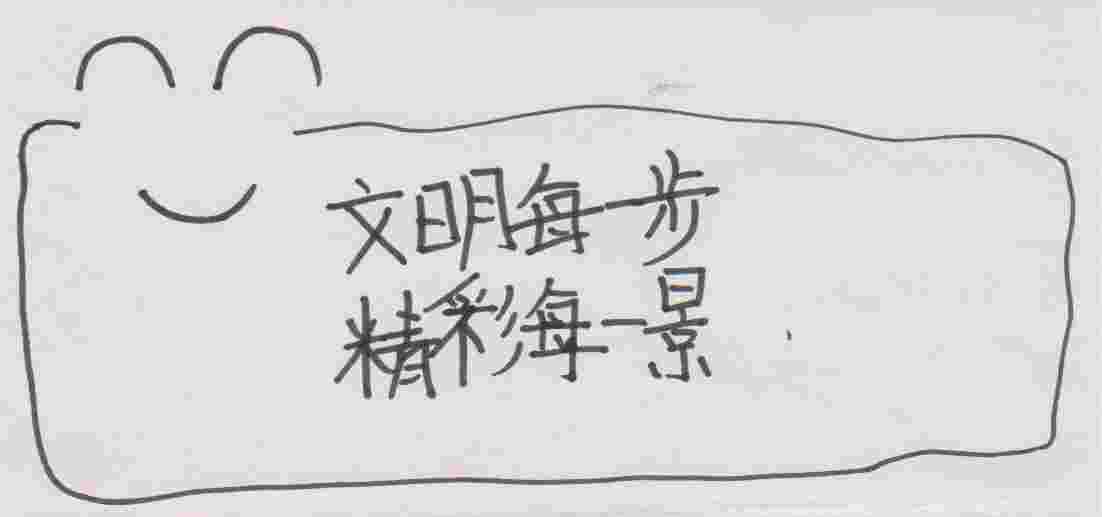 文明每一步
精彩每一景